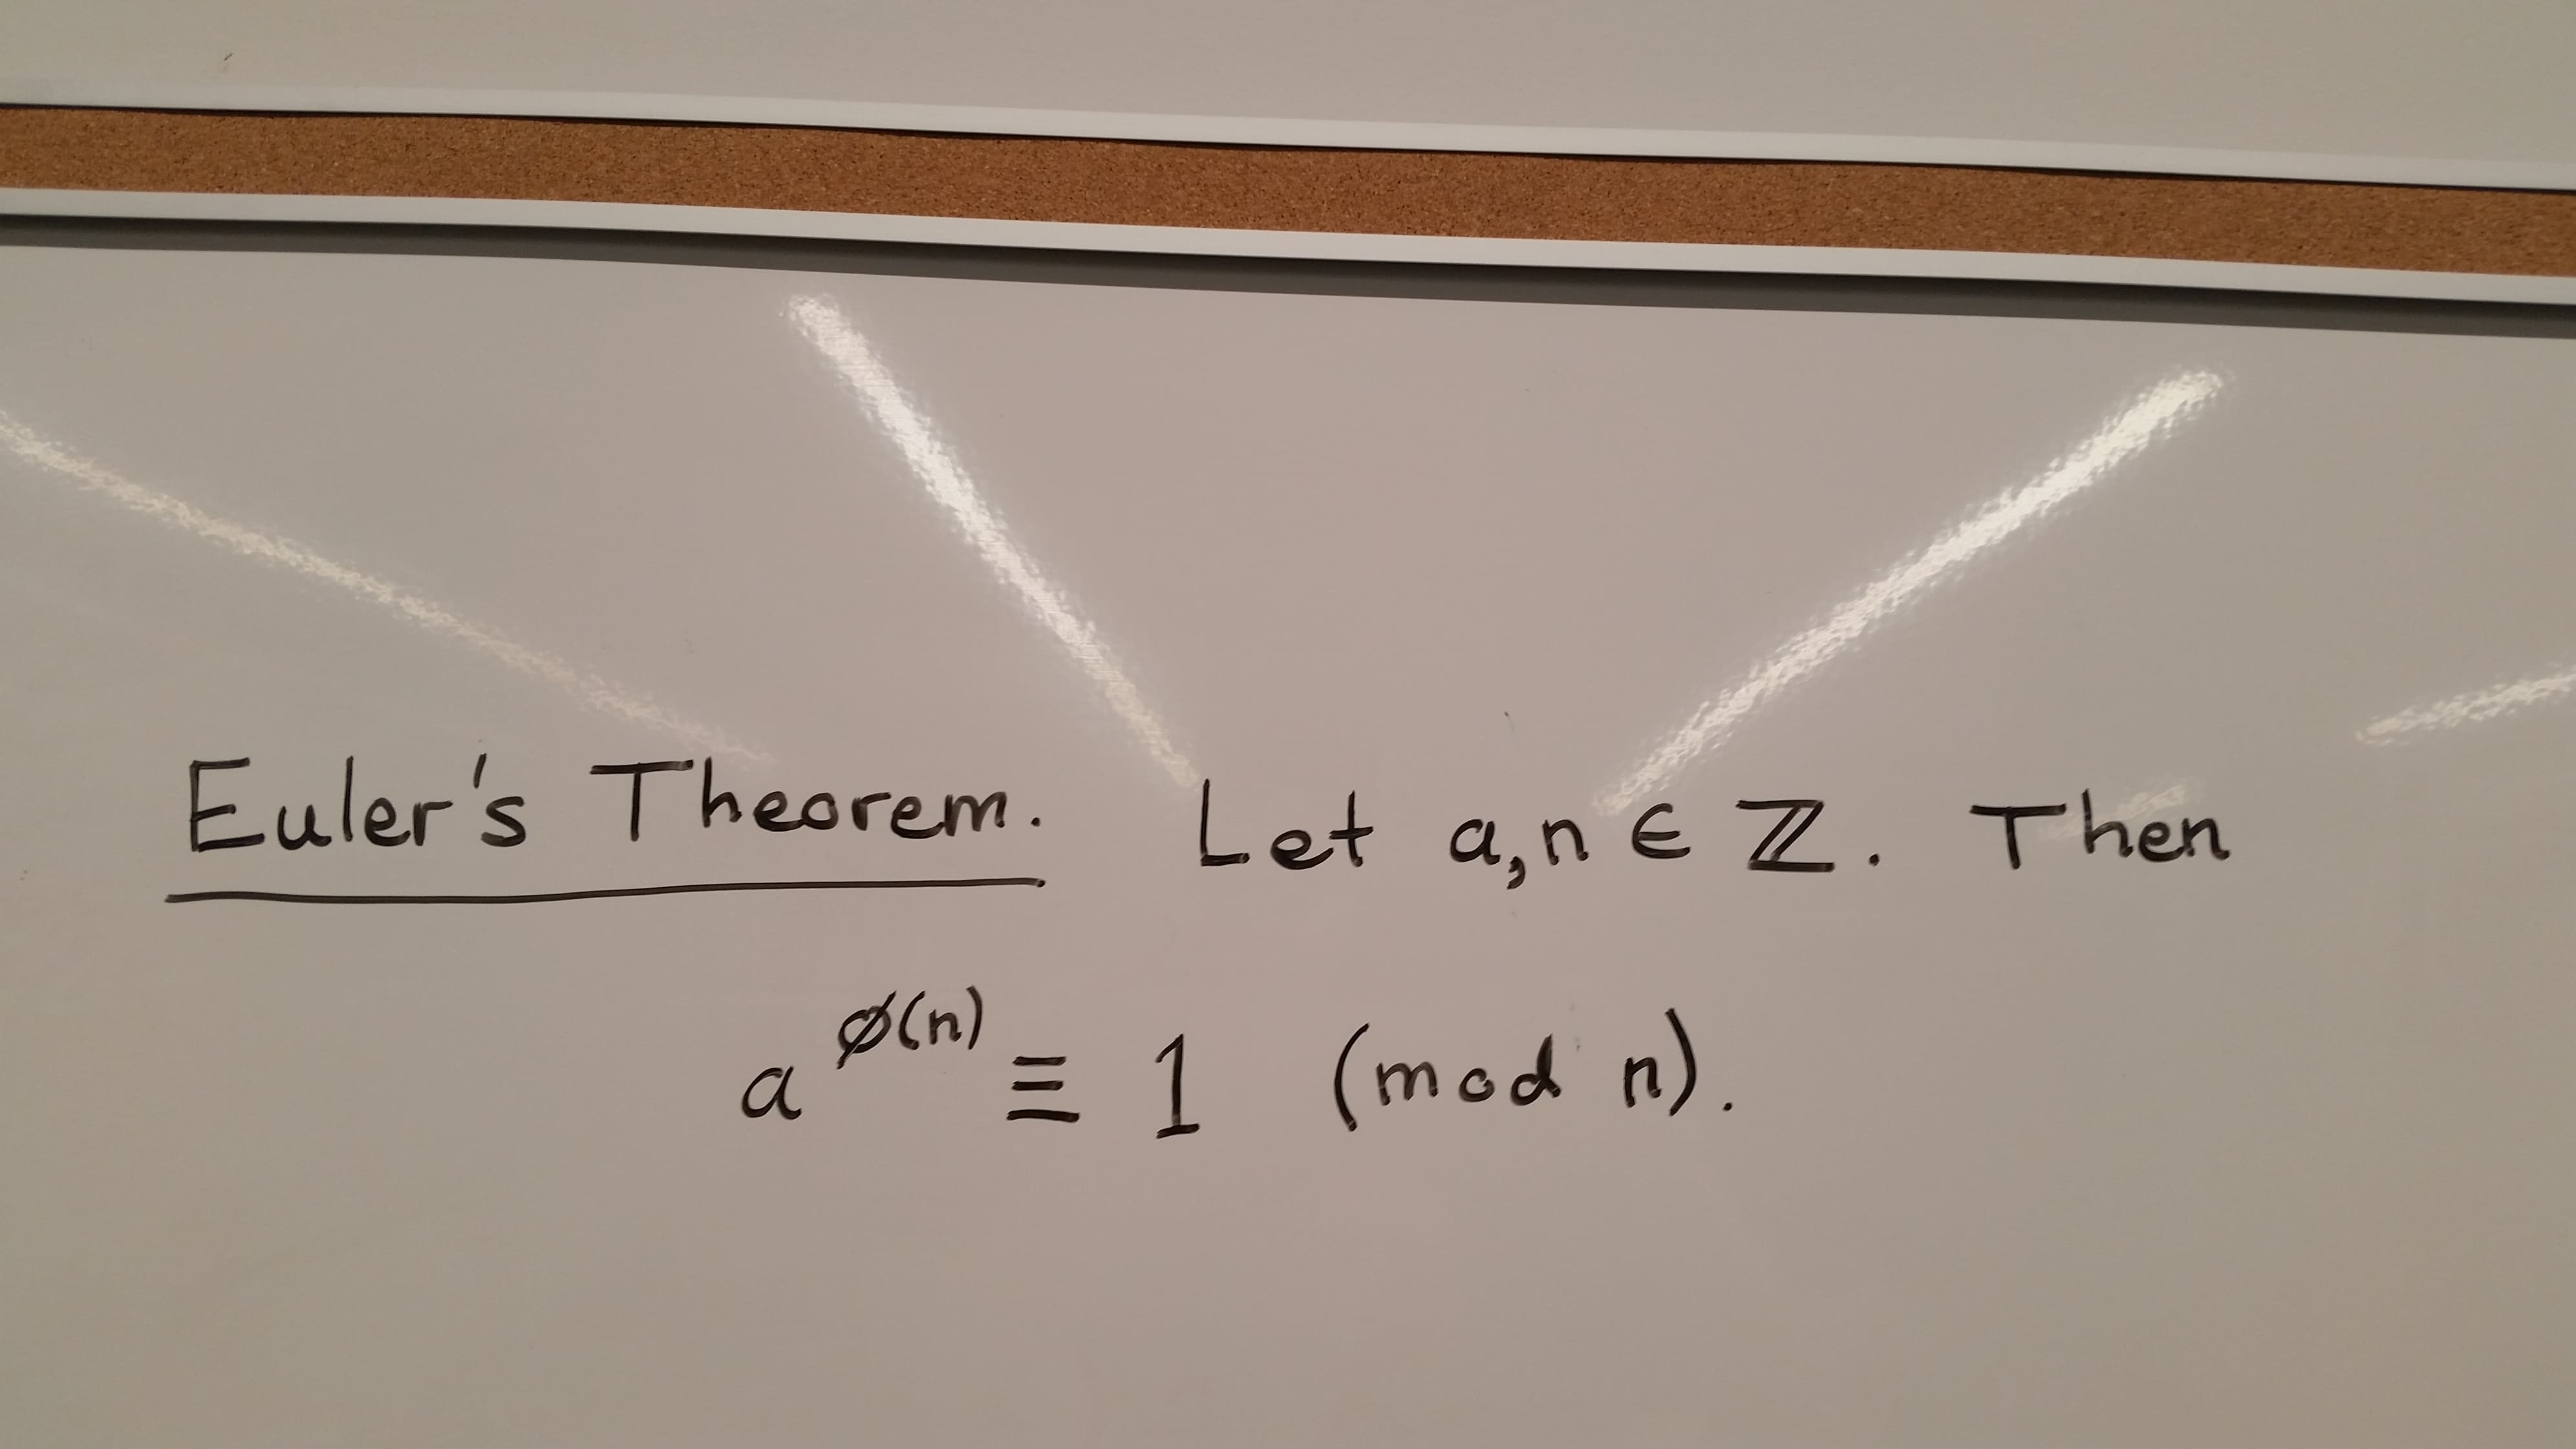 Euler's Theorem. Let a,n ∈ ℤ. Then
a^ø(n) ≡ 1 (mod n).